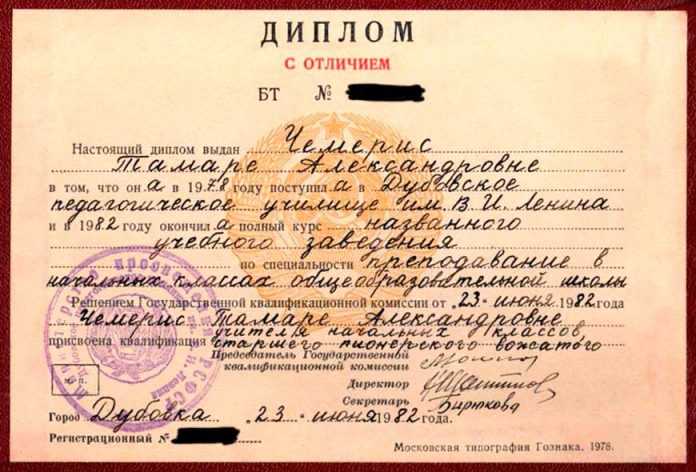 ДИПЛОМ
С ОТЛИЧИЕМ
БТ №
Настоящий диплом выдан Чемерис
Тамаре Александровне
в том, что он а в 1978 году поступил а в Дубовское
педагогическое училище им. В. И. Ленина
и в 1982 году окончил а полный курс названного
учебного заведения
по специальности преподавание в
начальных классах общеобразовательной школы
Решением Государственной квалификационной комиссии от „23" июня 1982 года
Чемерис Тамаре Александровне
присвоена квалификация учителя начальных классов,
старшего пионерского вожатого
Председатель Государственной
квалификационной комиссии
Директор
Секретарь Бирюкова
М. п.
Город Дубовка „23" июня 1982 года.
Регистрационный №
Московская типография Гознака. 1978.